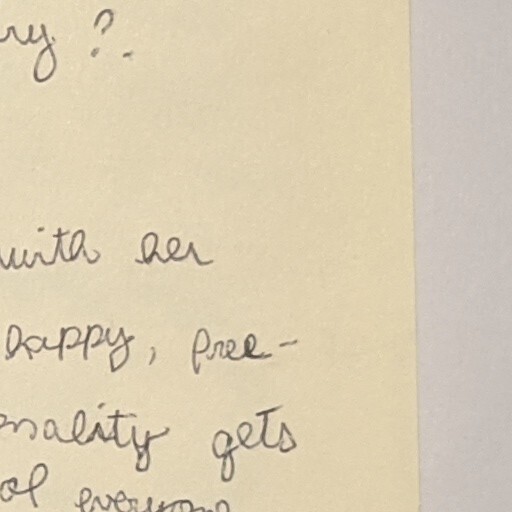 ry?.
with her
happy, free-
onality gets
of everyone